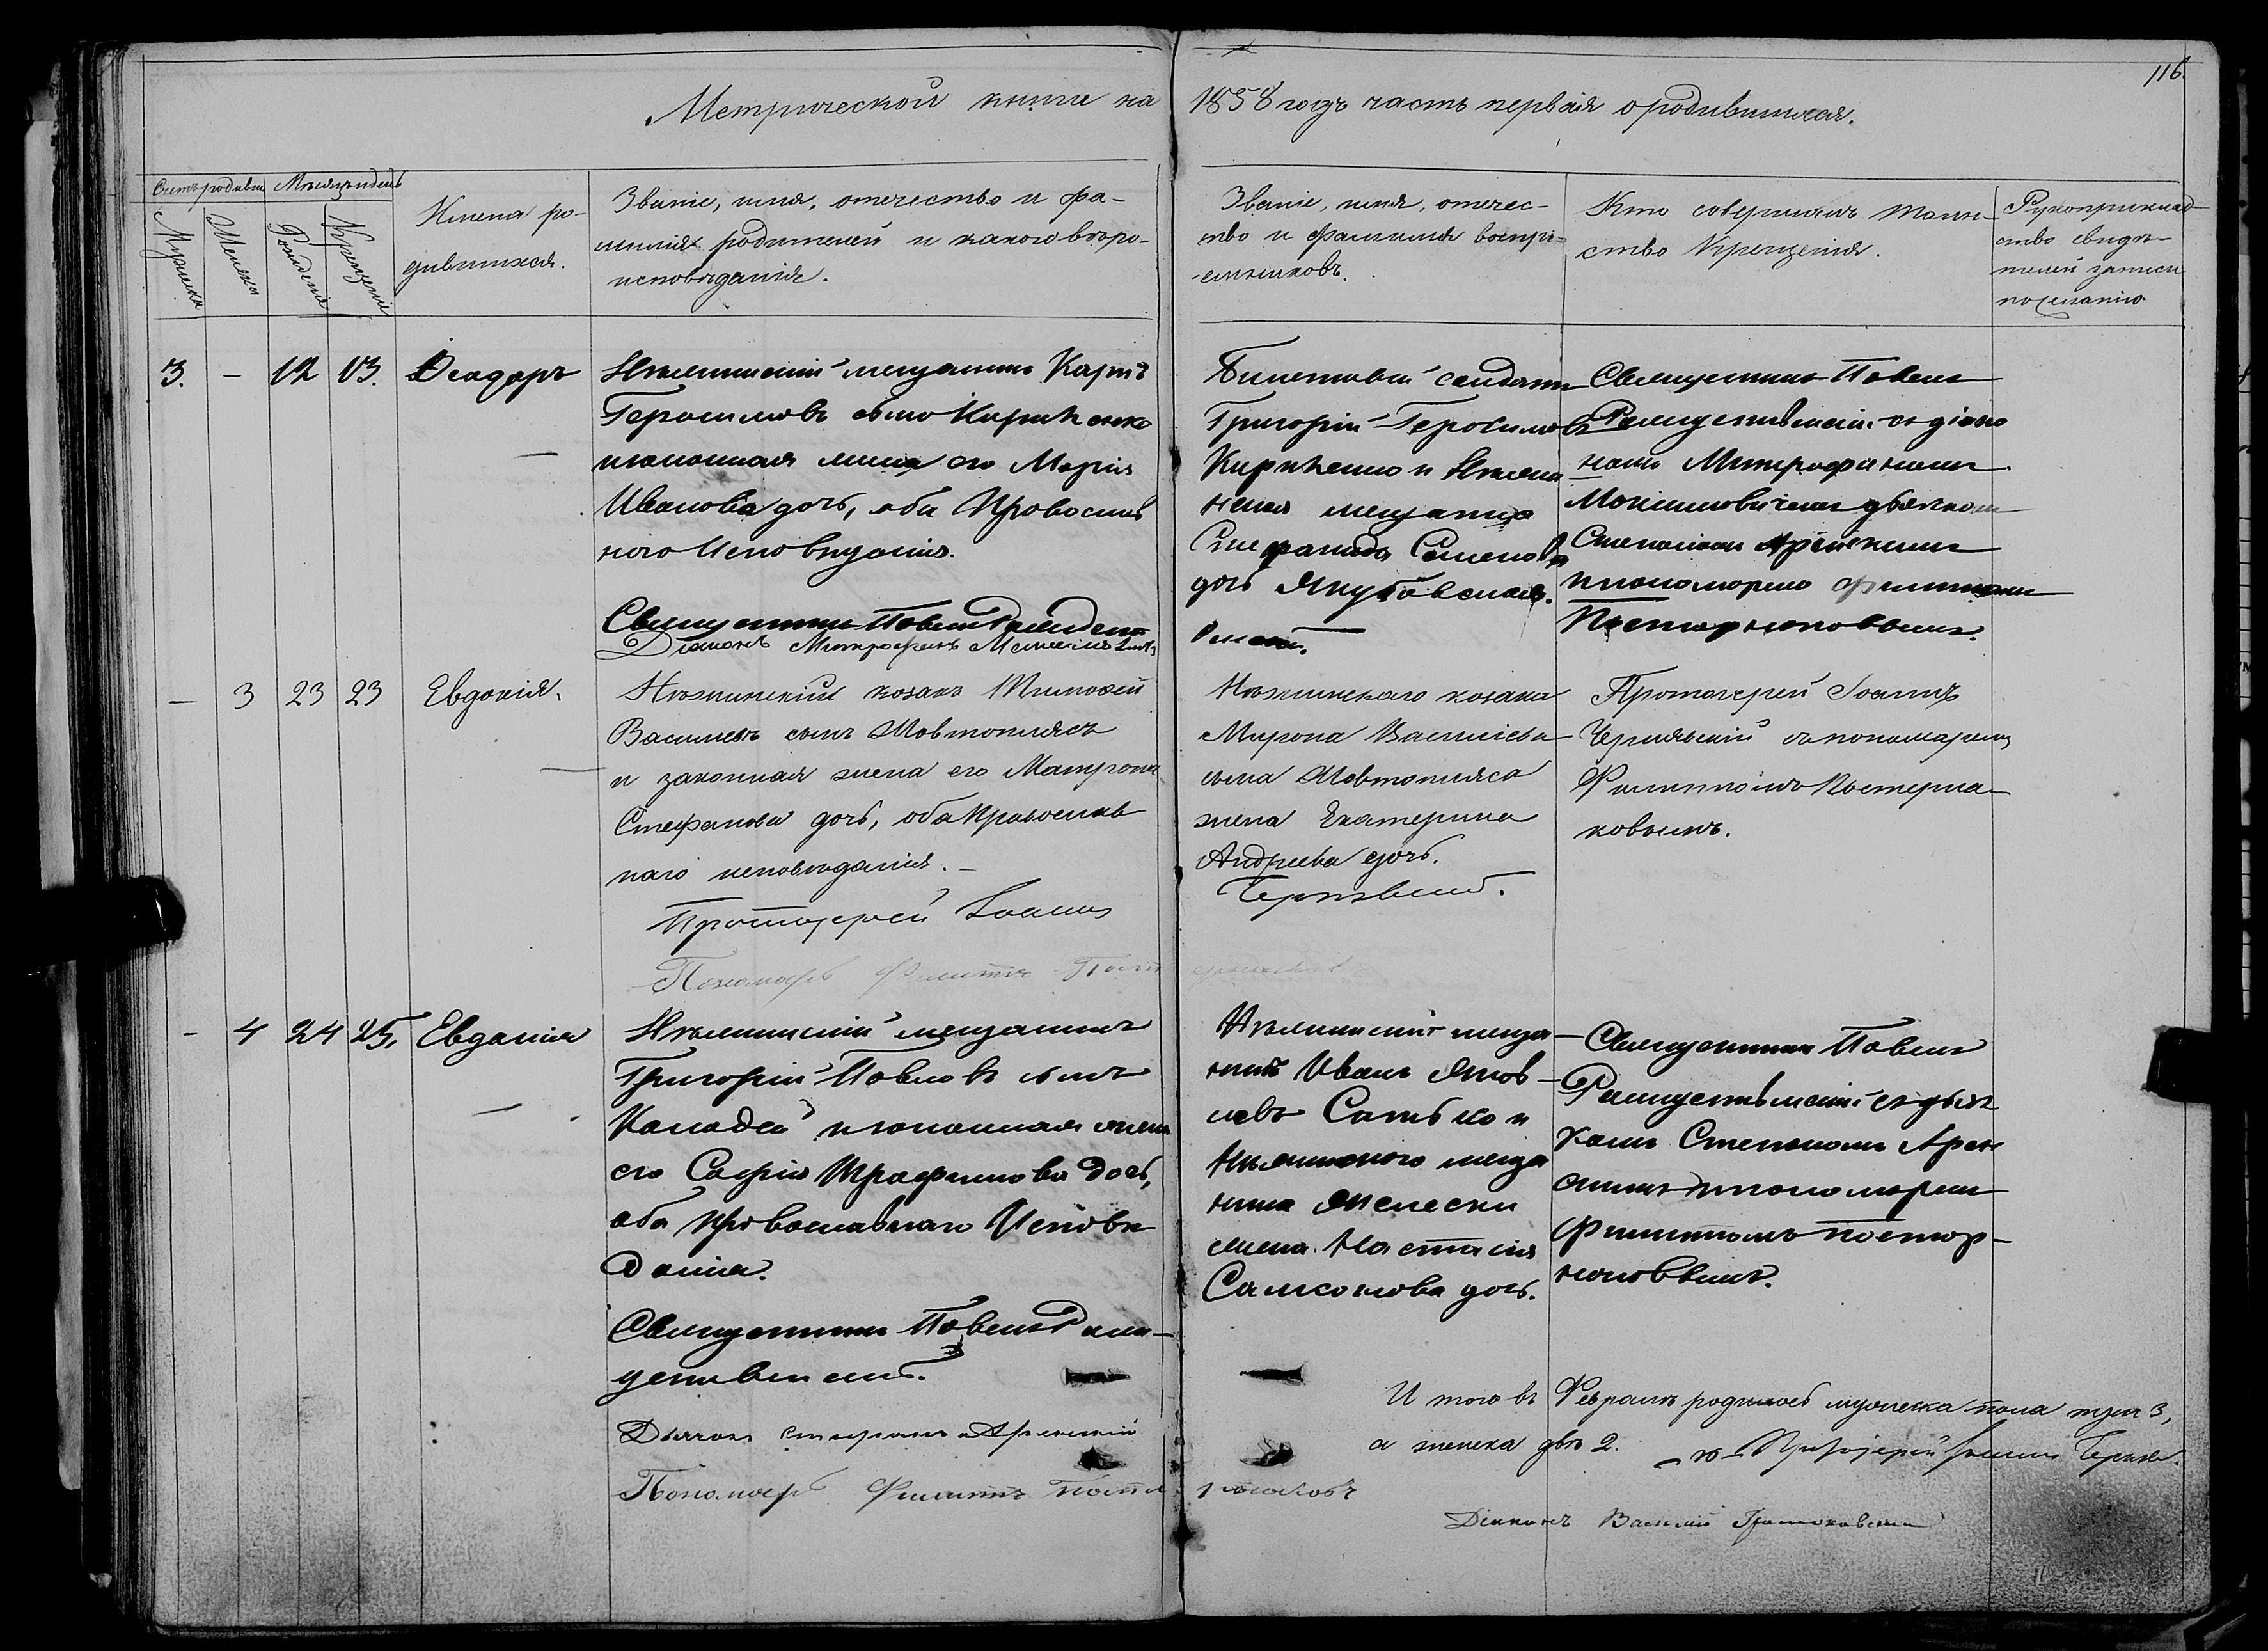 116.
Метрической книги на 1858 годъ часть первая о родившихся.
Счетъ родивш
Мѣсяцъ и день
Мужеска
Женска
Рожденія
Крещенія
Имена ро-
дившихся.
Званіе, имя, отечество и фа-
милія родителей и какого вѣро-
исповѣданія.
Званіе, имя, отечес-
тво и фамилія воспрі-
емниковъ.
Кто совершилъ таин-
ство Крещенія.
Рукоприклад-
ство свидѣ-
телей записи
по желанію
3. - 12 13. Ѳеодоръ
Нѣжинскій мещанинъ Карпъ
Герасимовъ сынъ
изаконная жена его Марія
Иванова дочь, оба Православ
ного Исповѣданія.
Священникъ Павелъ Рождест
Діаконъ Митрофанъ
Билетовый солдатъ
Григорій Геросимовъ
Кириченко и Нѣжин
мещанка
Семенова
дочь Якубовская.
Священникъ Павелъ
Рождественскій съ діако
номъ Митрофаномъ
дьячкомъ
Стефаномъ Арсенскимъ
ипономоремъ Филиппомъ
Постернаковымъ.
- 3 23 23 Евдокія.
Нѣжинскій козакъ Тимофей
Васильевъ сынъ Шовтопляс
и законная жена его Матрона
Стефанова дочь, оба Православ
наго исповѣданія. -
Протоіерей Іоаннъ Чернявскій.
Пономарь Филиппъ Пастернаков
Нѣжинскаго козака
Мирона Васильева
сына Шовтопляса
жена Екатерина
Андреева дочь.
Протоіерей Іоаннъ
Чернявскій съ пономаремъ
Филиппомъ Постерна-
ковымъ.
- 4 24 25. Евдокія
Нѣжинскій мещанинъ
Григорій Павловъ сынъ
Колодей изаконная жена
его Софія Трофимова дочь,
оба православнаго Исповѣ
данія.
Священникъ Павелъ Рож-
дественскій.
Дьячокъ Стефанъ Арсенскій
Пономарь Филиппъ Пастернаковъ
Нѣжинскій меща
нинъ Иванъ Яков-
левъ Сотько и
Нѣжинского меща
нина
жена Настасія
Самсонова дочь.
Священникъ Павелъ
Рождественскій съ дьяч
комъ Стефаномъ Арсен
скимъ ипономоремъ
Филиппомъ Постер-
наковымъ.
Итого въ Февралѣ родилось мужеска пола три 3,
а женска двѣ 2. Протоіерей Іоаннъ Чернявс.
Діаконъ Василій